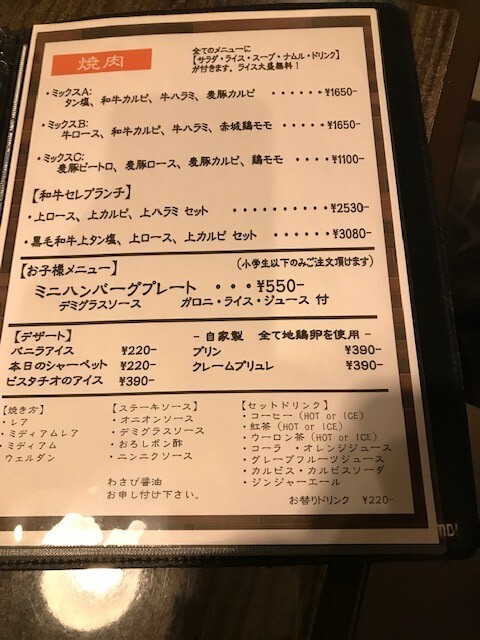 焼肉
全てのメニューに
【サラダ・ライス・スープ・ナムル・ドリンク】
が付きます。ライス大盛無料！
・ミックスA:
タン塩、和牛カルビ、牛ハラミ、麦豚カルビ ・・・・・・¥1650-
・ミックスB:
牛ロース、和牛カルビ、牛ハラミ、赤城鶏モモ ・・・・¥1650-
・ミックスC:
麦豚ピートロ、麦豚ロース、麦豚カルビ、鶏モモ ・・・・¥1100-
【和牛セレブランチ】
・上ロース、上カルビ、上ハラミ セット ・・・・・・・・・・¥2530-
・黒毛和牛上タン塩、上ロース、上カルビ セット ・・・・・・¥3080-
【お子様メニュー】 (小学生以下のみご注文頂けます)
ミニハンバーグプレート ・・・¥550-
デミグラスソース ガロニ・ライス・ジュース 付
【デザート】 - 自家製 全て地鶏卵を使用 -
バニラアイス ¥220- プリン ¥390-
本日のシャーペット ¥220- クレームブリュレ ¥390-
ピスタチオのアイス ¥390-
【焼き方】
・レア
・ミディアムレア
・ミディアム
ウェルダン
【ステーキソース】
・オニオンソース
・デミグラスソース
・おろしポン酢
・ニンニクソース
わさび醤油
お申し付け下さい。
【セットドリンク】
・コーヒー (HOT or ICE)
・紅茶 (HOT or ICE)
・ウーロン茶 (HOT or ICE)
・コーラ ・オレンジジュース
・グレープフルーツジュース
・カルピス・カルピスソーダ
・ジンジャーエール
お替りドリンク ¥220-